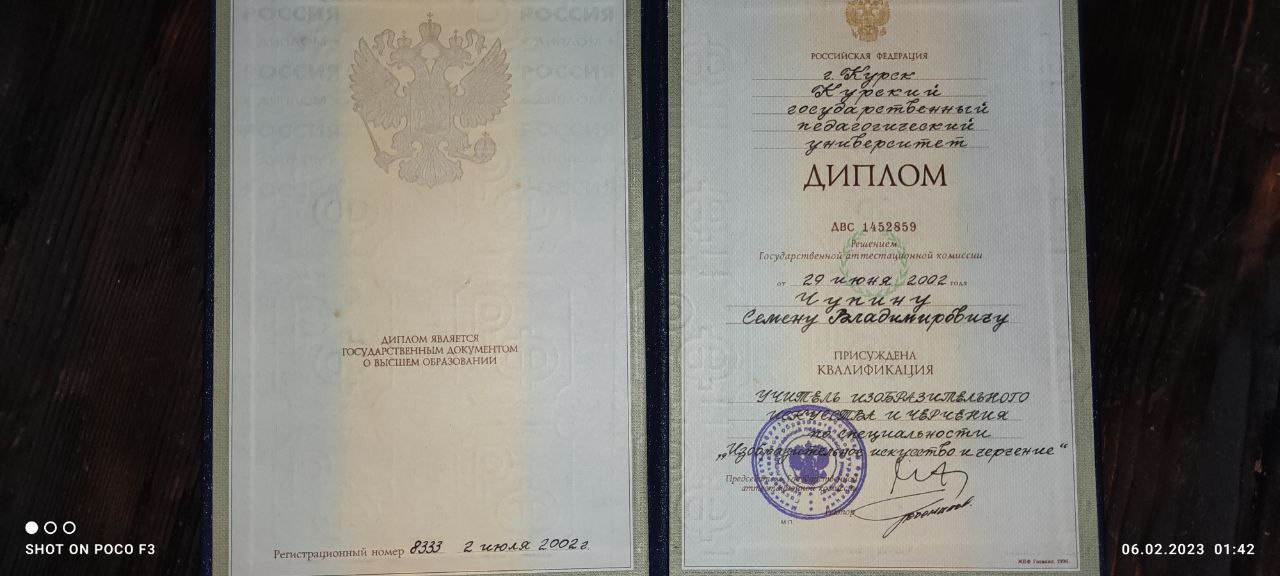 РОССИЯ
РОССИЯ
РОССИЯ
РОССИЯ
ДИПЛОМ ЯВЛЯЕТСЯ
ГОСУДАРСТВЕННЫМ ДОКУМЕНТОМ
О ВЫСШЕМ ОБРАЗОВАНИИ
Регистрационный номер 8333 2 июля 2002г.
РОССИЙСКАЯ ФЕДЕРАЦИЯ
г. Курск
Курский
государственный
педагогический
университет
ДИПЛОМ
ДВС 1452859
Решением
Государственной аттестационной комиссии
от 29 июня 2002 года
Чупину
Семену Владимировичу
ПРИСУЖДЕНА
КВАЛИФИКАЦИЯ
УЧИТЕЛЬ ИЗОБРАЗИТЕЛЬНОГО
ИСКУССТВА И ЧЕРЧЕНИЯ
по специальности
„Изобразительное искусство и черчение“
Председатель Государственной
аттестационной комиссии
Ректор
М.П.
SHOT ON POCO F3
06.02.2023 01:42